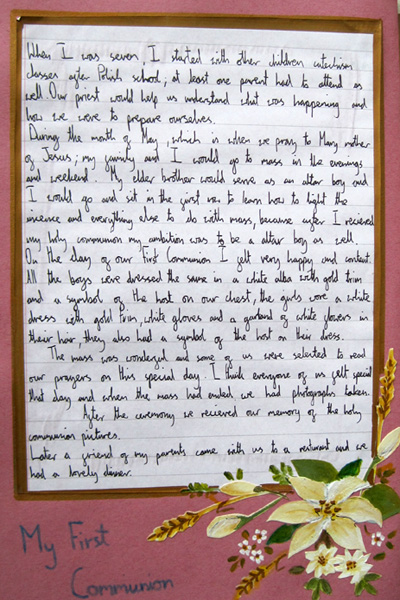 When I was seven, I started with other children catechism
classes after Polish school, at least one parent had to attend as
well. Our priest would help us understand what was happening and
how we were to prepare ourselves.
During the month of May, which is when we pray to Mary mother
of Jesus; my family and I would go to mass in the evenings
and weekend. My elder brother would serve as an altar boy and
I would go and sit in the first row to learn how to light the
incence and everything else to do with mass, because after I recieved
my holy communion my ambition was to be a altar boy as well.
On the day of our First Communion I felt very happy and content.
All the boys were dressed the same in a white alba with gold trim
and a symbol of the host on our chest, the girls wore a white
dress with gold trim, white gloves and a garland of white flowers in
their hair, they also had a symbol of the host on their dress.
The mass was wonderful and some of us were selected to read
our prayers on this special day. I think everyone of us felt special
that day and when the mass had ended, we had photographs taken.
After the ceremony we recieved our memory of the holy
communion pictures.
Later a friend of my parents came with us to a resturant and we
had a lovely dinner.
My First
Communion